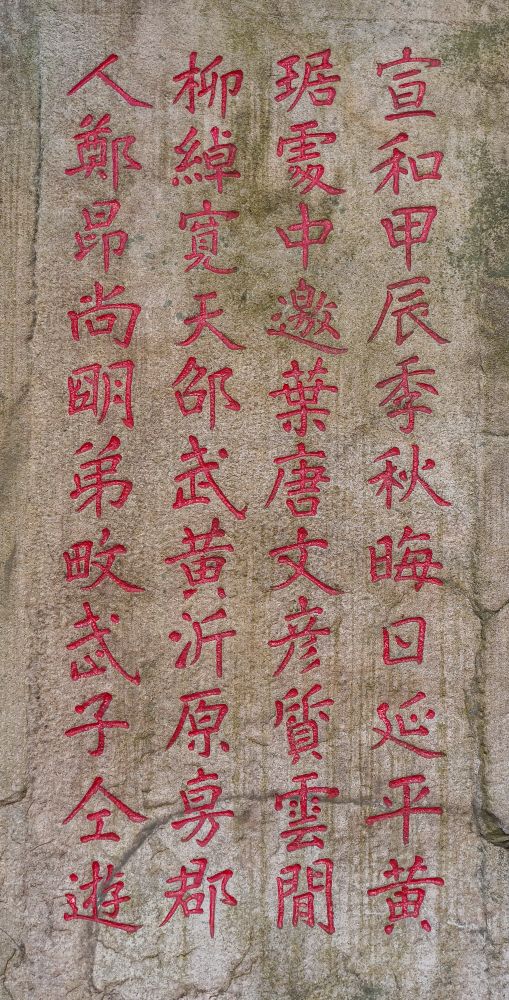 宣和甲辰季秋晦日延平黄
琚處中邀葉唐文彦質雲閒
柳綽寬天邵武黄沂原郡
人鄭昂尚明弟畋武子仝遊